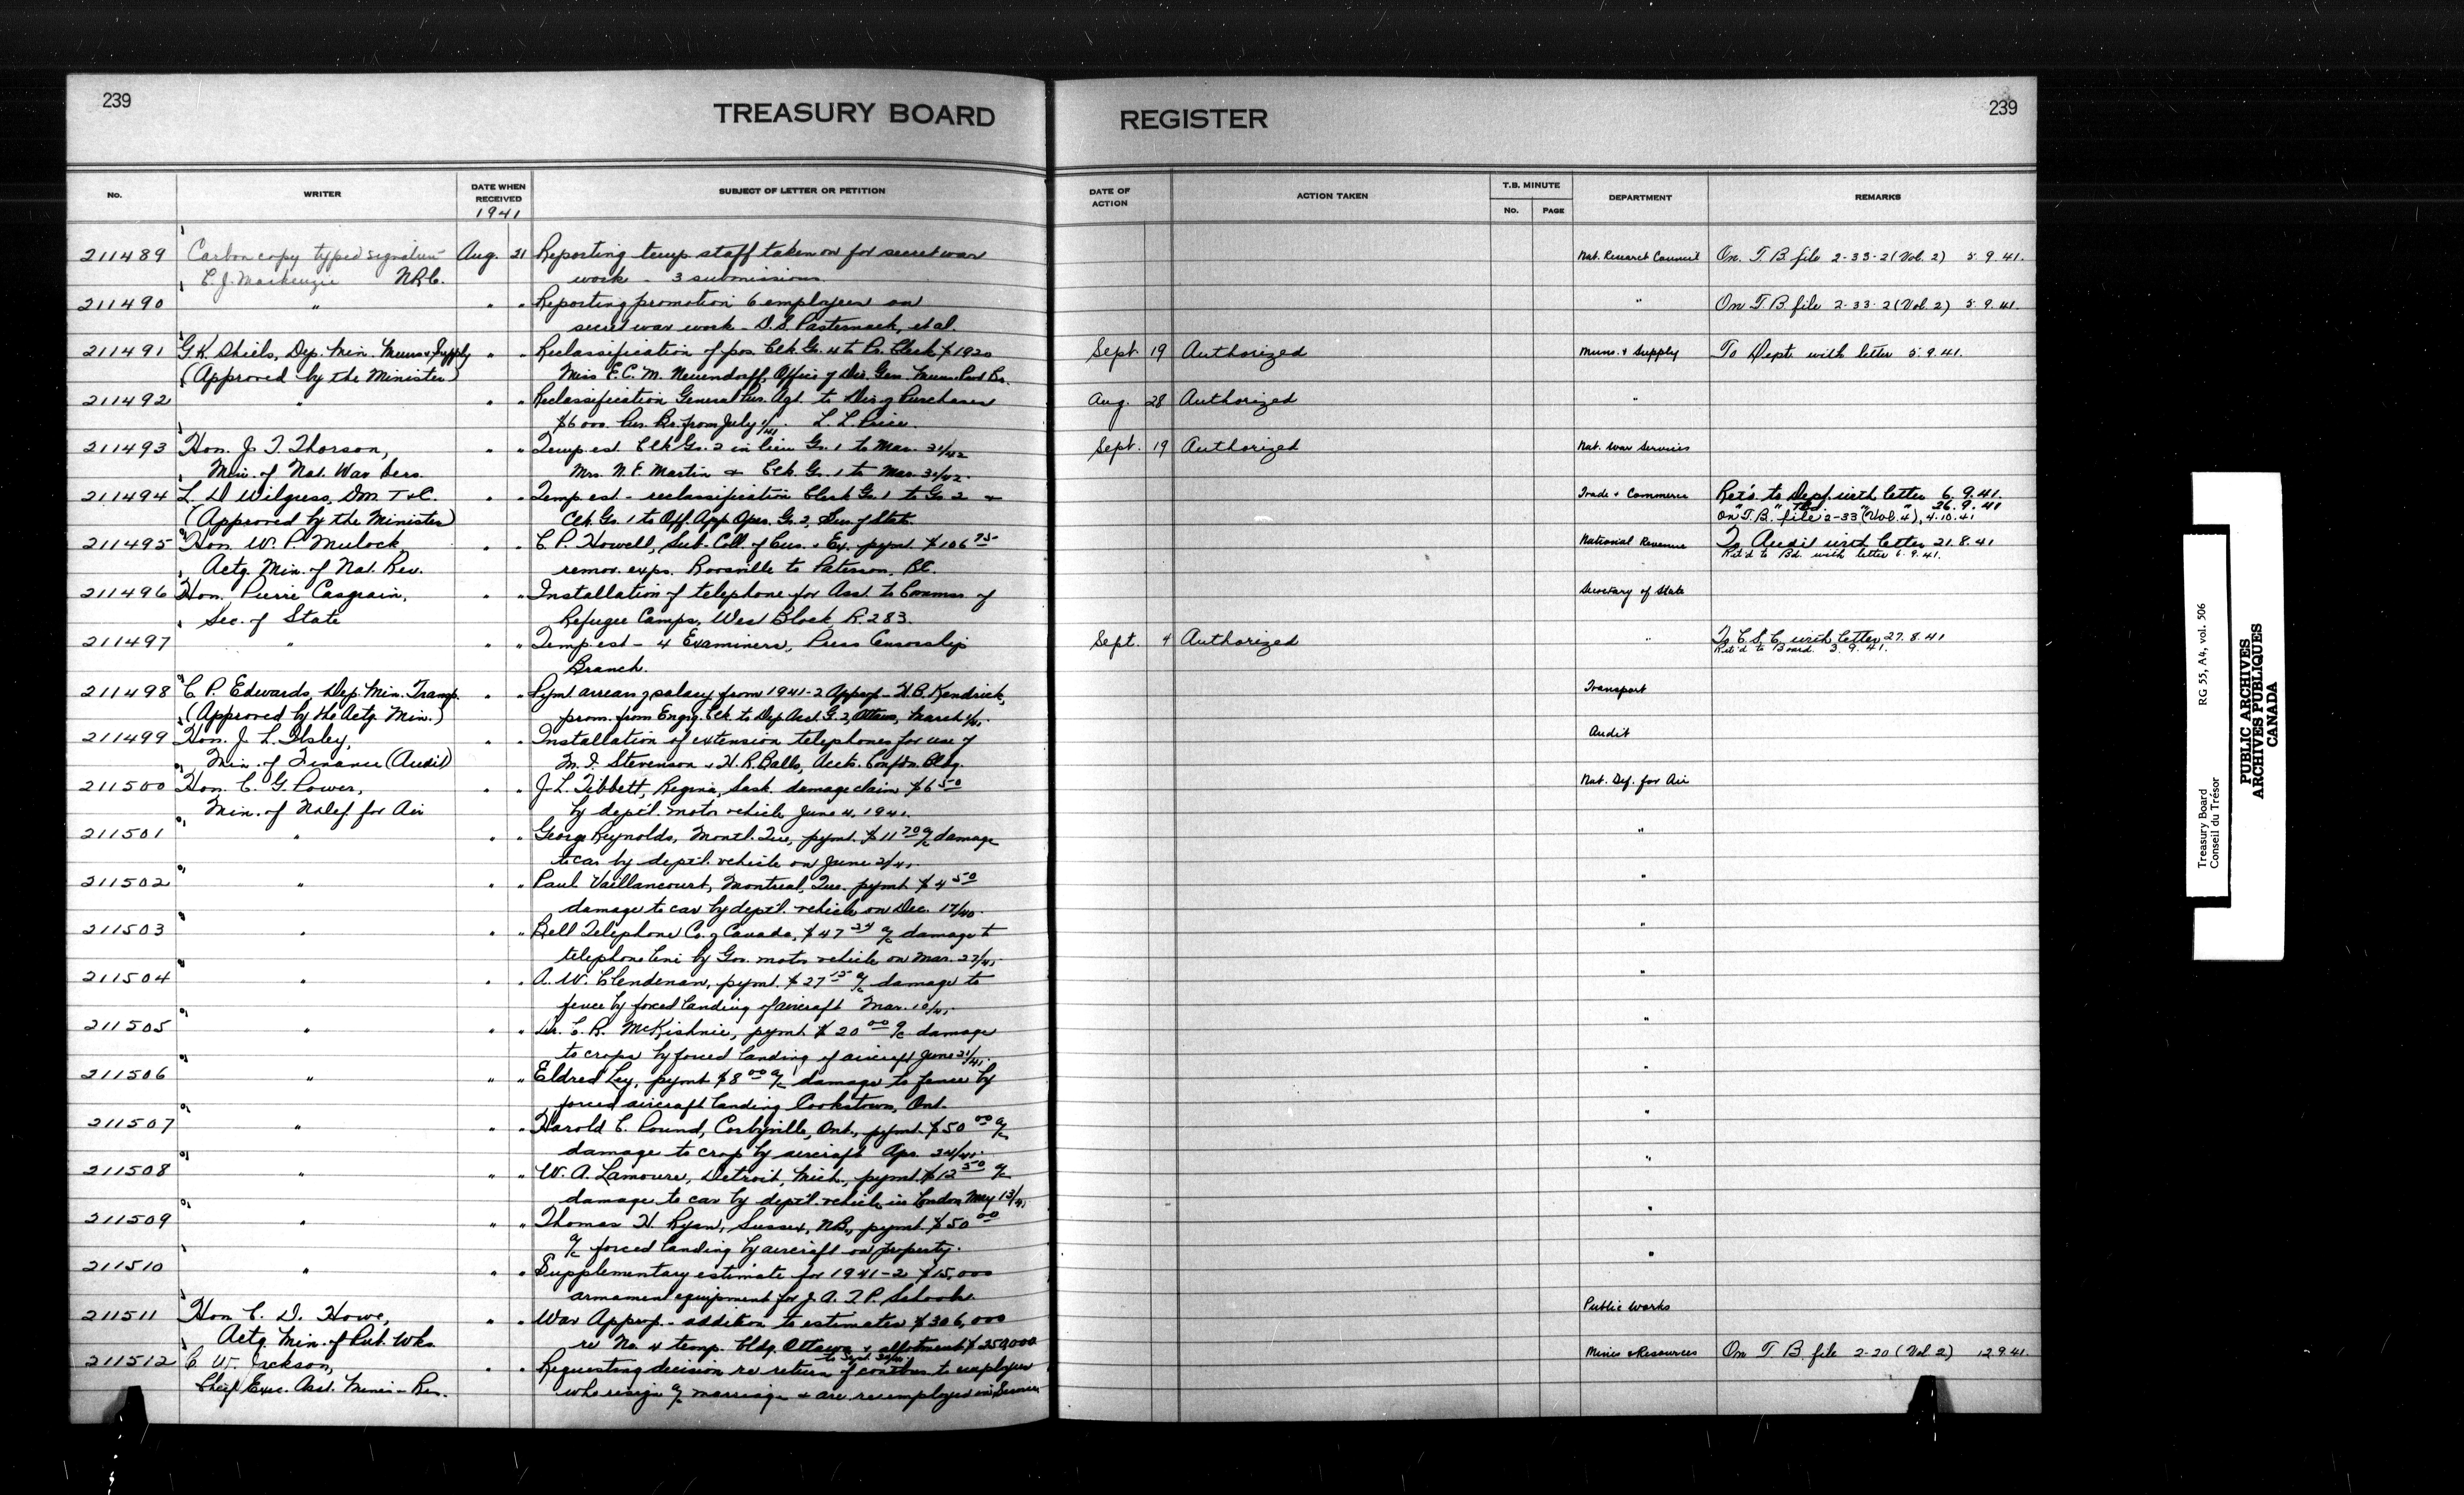 239
TREASURY BOARD
REGISTER
239
No.
WRITER
DATE WHEN RECEIVED
1941
SUBJECT OF LETTER OR PETITION
DATE OF ACTION
ACTION TAKEN
T.B. MINUTE
No.
PAGE
DEPARTMENT
REMARKS
211489 Carbon copy typed signature Aug. 21 Reporting temp staff taken on for secret war Nat. Research Council On T.B. file 2-33-2 (Vol. 2) 5.9.41.
C.J. Mackenzie NRC. work - 3 submissions.
211490 " " " Reporting promotion 6 employees on " On T.B. file 2-33-2 (Vol. 2) 5.9.41.
secret war work - D.S. Pasternack, et al.
211491 G.K. Shiels, Dep. Min. Muns & Supply " " Reclassification of pos. Clk Gr. 4 to Pr. Clerk $1920 Sept 19 Authorized Muns. & Supply To Dept. with letter 5.9.41.
(Approved by the Minister) Miss E.C.M. Neuendorff, Office of Dir. Gen. Muns. Prod. Br.
211492 " " " Reclassification General Pur. Agt. to Dir. of Purchases Aug. 28 Authorized "
$6000. Pur. Br. from July 1/41. L.L. Price.
211493 Hon. J.T. Thorson, " " Temp. est. Clk Gr. 2 in lieu Gr. 1 to Mar. 31/42 Sept. 19 Authorized Nat. War Services
Min. of Nat. War Sers. Mrs. N.E. Martin & Clk. Gr. 1 to Mar. 31/42.
211494 L.D. Wilgress, DM T&C. " " Temp est - reclassification Clerk Gr. 1 to Gr. 2 & Trade & Commerce Ret'd. to Dept. with letter 6.9.41.
" " Bd. " " 26.9.41
(Approved by the Minister) Clk. Gr. 1 to Off. App. Oper. Gr. 2, of State. On T.B. file 2-33 (Vol. 4), 4.10.41
211495 Hon. W.P. Mulock, " " C.P. Howell, Sub. Coll. of Cus. & Ex. pymt. $106.75 National Revenue To Audit with letter 21.8.41
Ret'd to Bd. with letter 6.9.41.
Actg. Min. of Nat. Rev. remov. exps. Roosville to Paterson, B.C.
211496 Hon. Pierre Casgrain, " " Installation of telephone for Asst. to Commr. of Secretary of State
Sec. of State Refugee Camps, West Block, R. 283.
211497 " " " Temp est - 4 Examiners, Press Censorship Sept. 4 Authorized " To C.S.C. with letter 27.8.41
Ret'd to Board. 3.9.41.
Branch.
211498 C.P. Edwards, Dep. Min. Transp. " " Pymt arrears of salary from 1941-2 Approp - H.B. Kendrick, Transport
(Approved by the Actg. Min.) prom. from Engrg. Clk to Dep. Asst. G. 2, Ottawa, March 1/41.
211499 Hon. J.L. Ilsley, " " Installation of extension telephones for use of Audit
Min. of Finance (Audit) M.I. Stevenson & H.R. Balls, Accts. Confdn. Bldg.
211500 Hon. C.G. Power, " " J.L. Tibbett, Regina, Sask. damage claim $6.50 Nat. Def. for Air
Min. of N.Def. for Air by dept'l. motor vehicle June 4, 1941.
211501 " " " George Reynolds, Montl. Que, pymt. $11.70 a/c damage "
to car by dept'l. vehicle on June 2/41.
211502 " " " Paul Vaillancourt, Montreal, Que. pymt $4.50 "
damage to car by dept'l. vehicle on Dec. 17/40.
211503 " " " Bell Telephone Co. of Canada, $47.24 a/c damage to "
telephone line by Gov. motor vehicle on Mar. 27/41.
211504 " " " A.W. Clendenan, pymt. $27.15 a/c damage to "
fence by forced landing of aircraft Mar. 10/41.
211505 " " " Dr. C.R. McKishnie, pymt. $20.00 a/c damage "
to crops by forced landing of aircraft June 21/41.
211506 " " " Eldred Ley, pymt $8.00 a/c damage to fence by "
forced aircraft landing Cookstown, Ont.
211507 " " " Harold C. Pound, Corbyville, Ont., pymt. $50.00 a/c "
damage to crop by aircraft Apr. 24/41.
211508 " " " W.A. Lamoure, Detroit, Mich., pymt. $12.50 a/c "
damage to car by dept'l. vehicle in London May 13/41
211509 " " " Thomas H. Ryan, Sussex, N.B., pymt. $50.00 "
a/c forced landing by aircraft on property.
211510 " " " Supplementary estimate for 1941-2 $15,000 "
armament equipment for J.A.T.P. Schools.
211511 Hon. C.D. Howe, " " War Approp. - addition to estimates $306,000 Public Works
Actg. Min. of Pub. Wks. re No. 4 temp. bldg. Ottawa & allotment $250,000
to Sept. 30/41.
211512 C.W. Jackson, " " Requesting decision re return of contbns. to employees Mines & Resources On T.B. file 2-20 (Vol 2) 12.9.41.
Chief Exec. Asst. Mines - Res. who resign a/c marriage & are reemployed in Service
Treasury Board RG 55, A4, vol. 506
Conseil du Trésor
PUBLIC ARCHIVES
ARCHIVES PUBLIQUES
CANADA